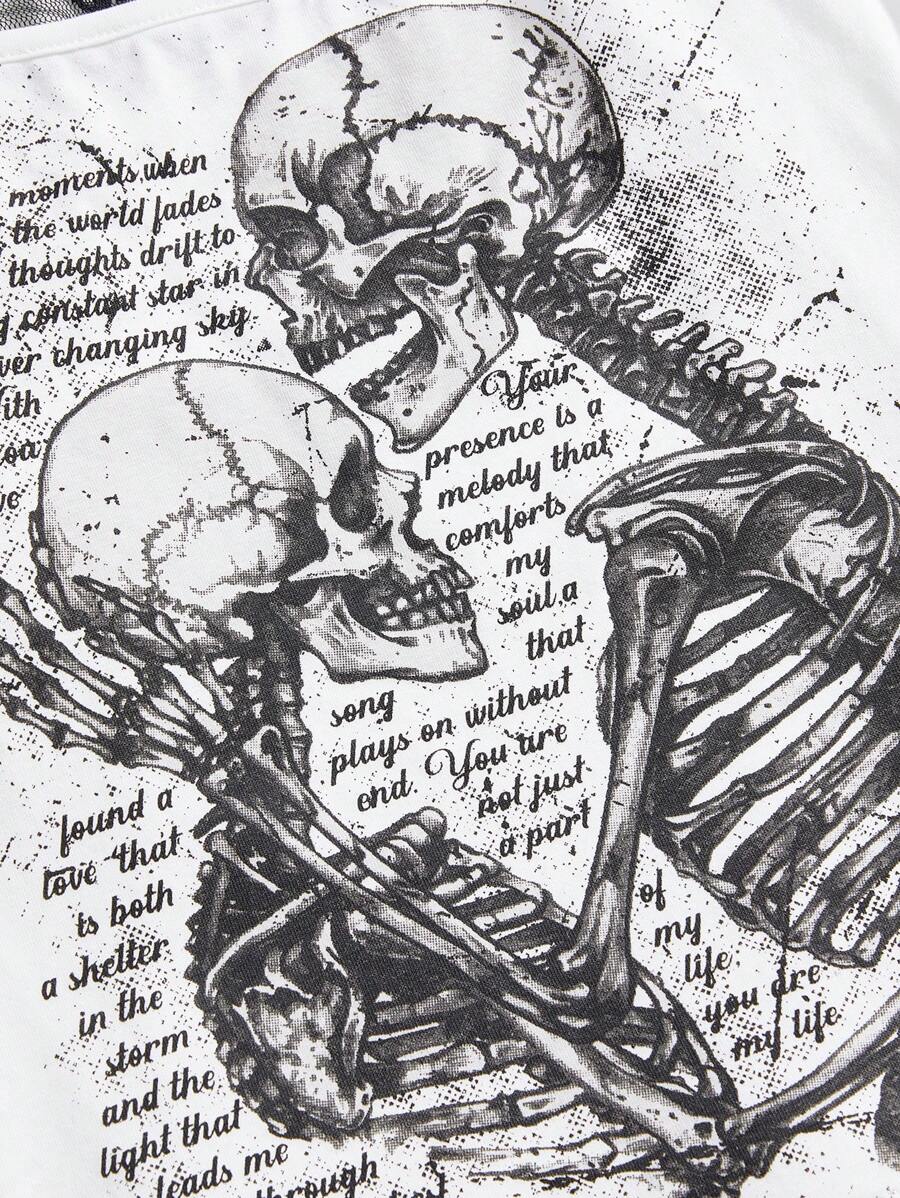 moments when
the world fades
thoughts drift to
constant star in
ver changing sky
ith
Your
presence is a
melody that
comforts
my
soul a
that
song
plays on without
end. You are
not just
a part
of
my
life
you are
my life
found a
love that
is both
a shelter
in the
storm
and the
light that
leads me
through